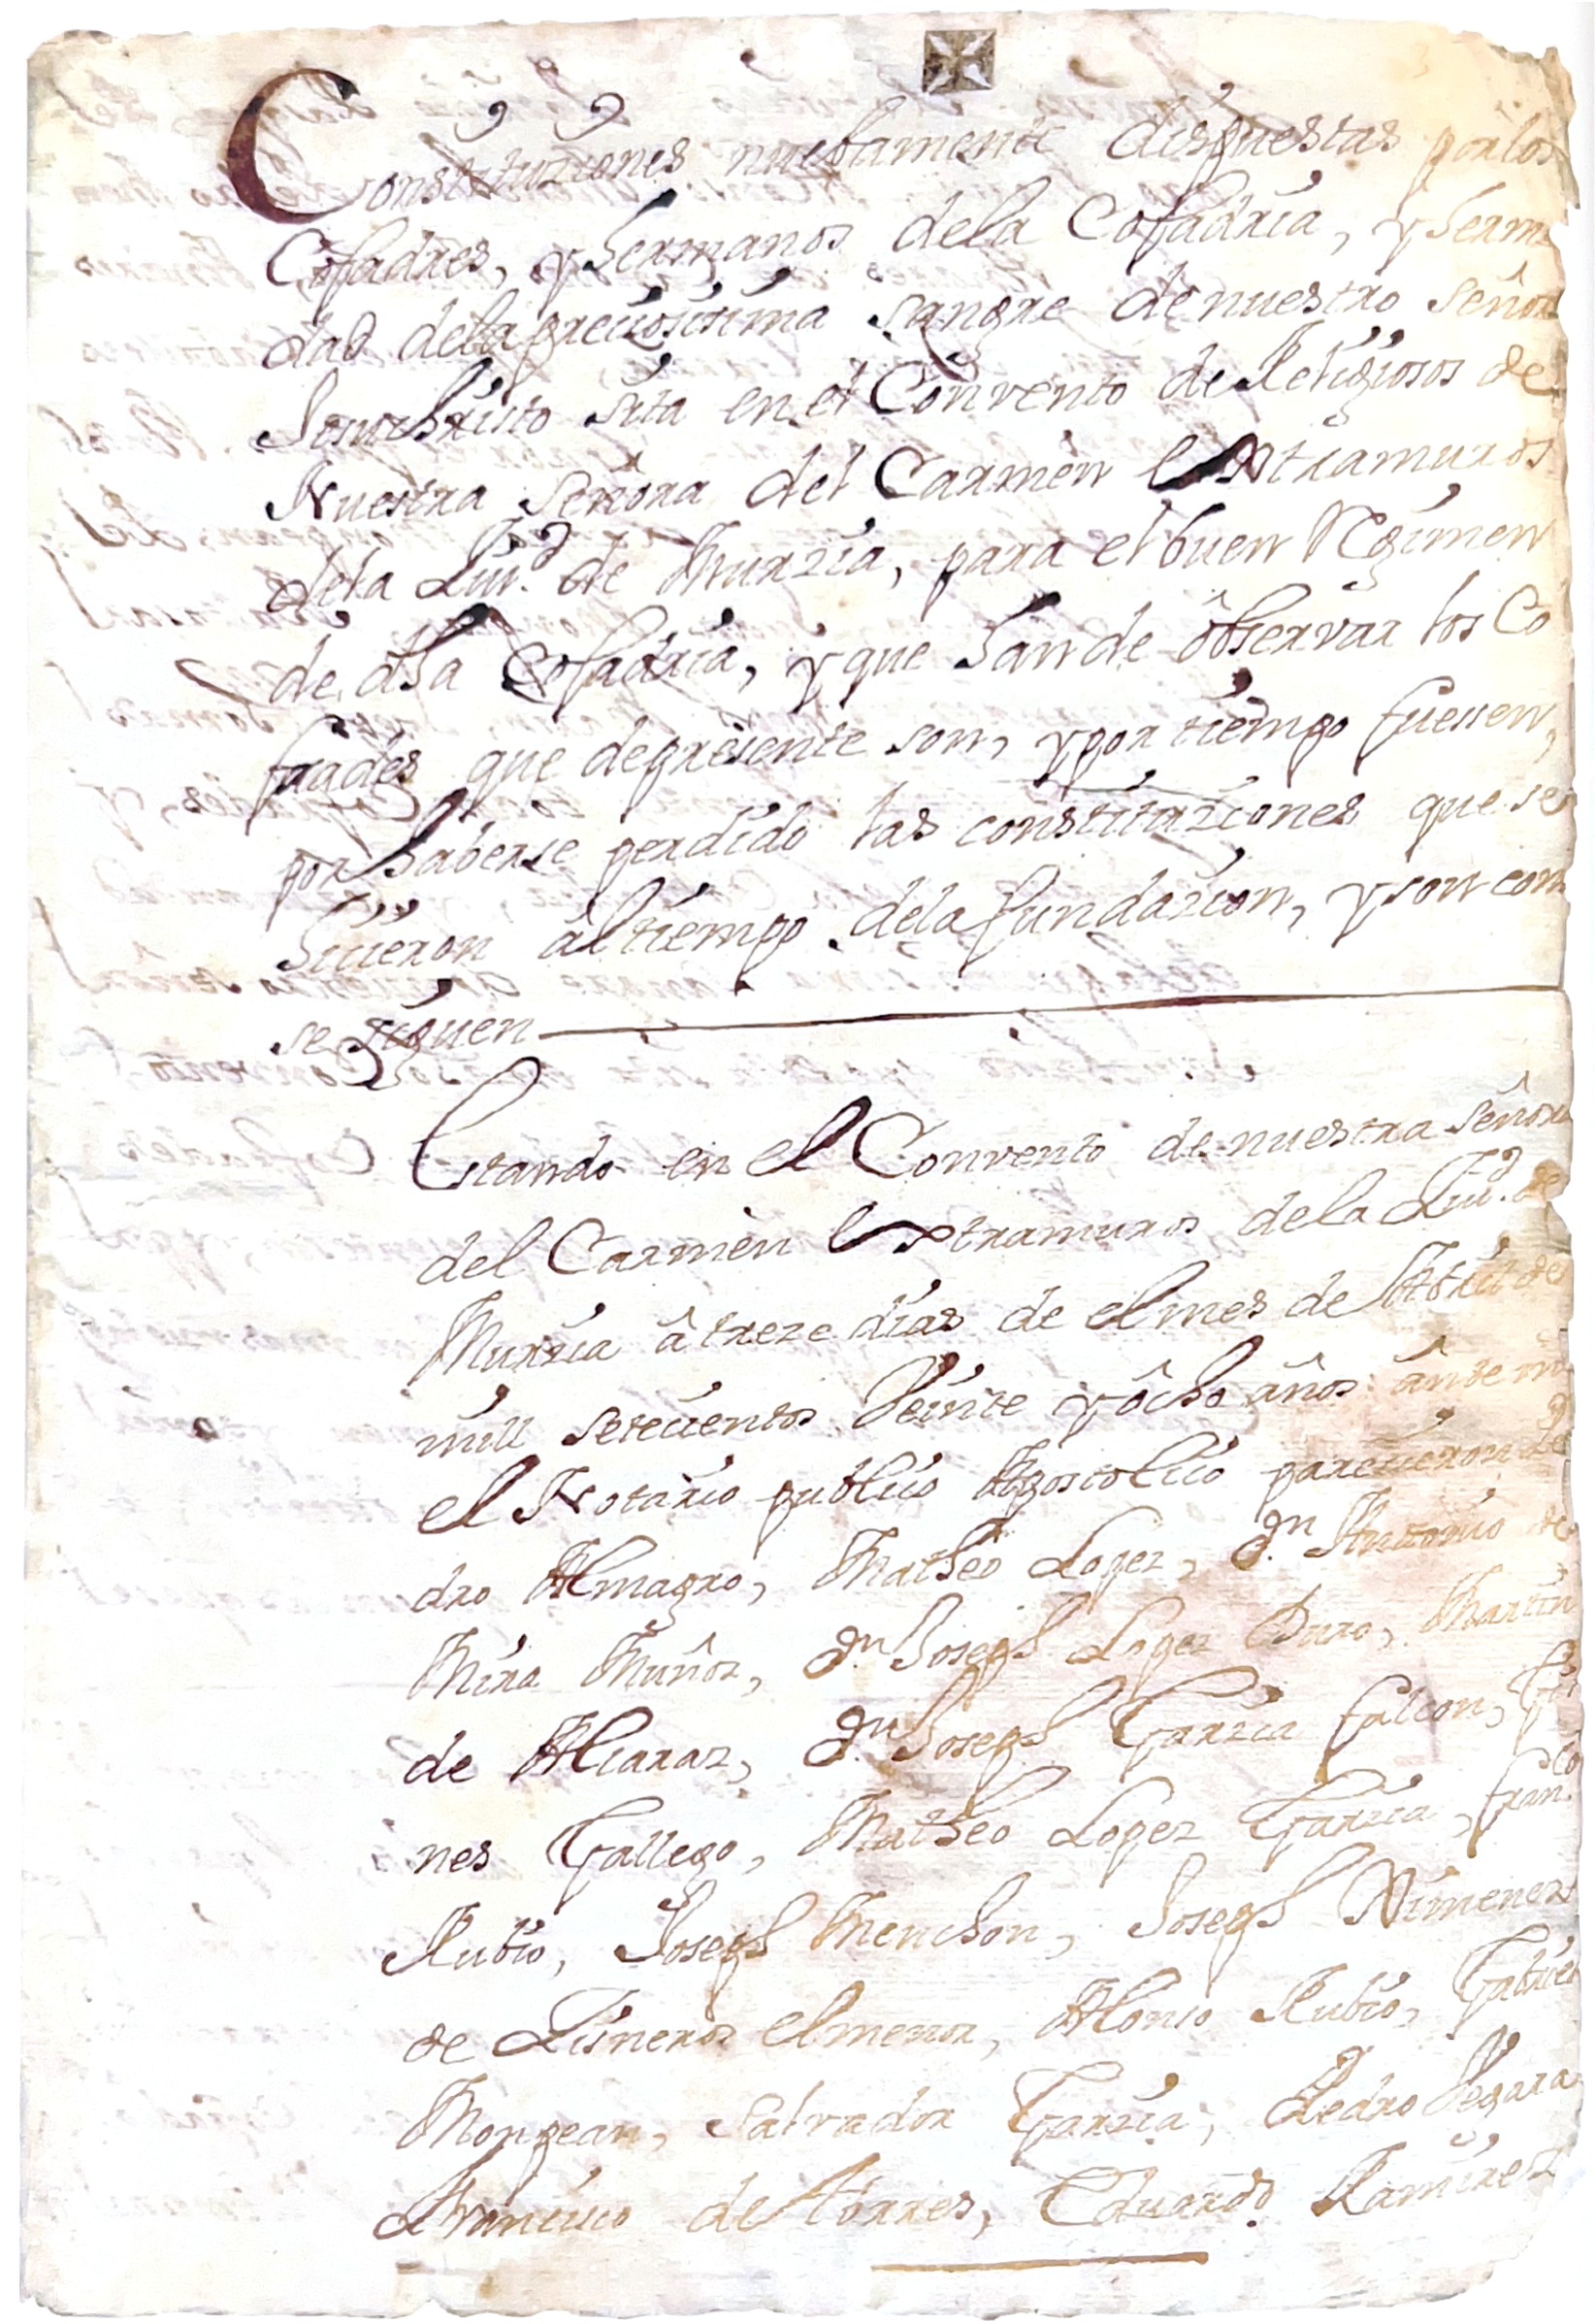 Constituziones nuebamente dispuestas por los
Cofadres, y hermanos dela Cofadria, y herm
dad dela preciosissima sangre de nuestro señor
Jesuchristo sita en el Convento de Religiosos de
Nuestra señora del Carmen Extramuros
dela Ziud. de Murzia, para el buen Regimen
de dha Cofadria, y que han de observar los Co
frades que depresente son, y por tiempo fuessen,
por haberse perdido las constituziones que se
hicieron âl tiempo dela fundazion, y son com
se siguen
Estando en el Convento de nuestra señora
del Carmen Extramuros dela Ziud. de
Murzia â treze dias de el mes de Abril de
mill setecientos Veinte y ôcho años ânte mi
el Notario publico Apostolico parecieron Pe
dro Almagro, Matheo Lopez, Dn. Antonio de
Mira Muñoz, Dn. Joseph Lopez Duro, Martin
de Alcaraz, Dn. Joseph Garzia falcon, Gi
nes Gallego, Matheo Lopez Garzia, fran.co
Rubio, Joseph Menchon, Joseph Ximenez
de Zisneros el menor, Alonso Rubio, Gabriel
Monpean, Salvador Garzia, Pedro Segara
Francisco de torres, Eduardo Ramirez